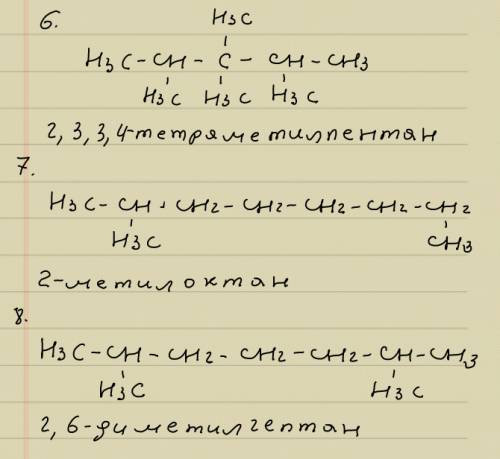 6.
H3C
H3C - CH - C - CH - CH3
H3C H3C H3C
2, 3, 3, 4-тетраметилпентан
7.
H3C - CH - CH2 - CH2 - CH2 - CH2 - CH2
H3C CH3
2-метилоктан
8.
H3C - CH - CH2 - CH2 - CH2 - CH - CH3
H3C H3C
2, 6-диметилгептан